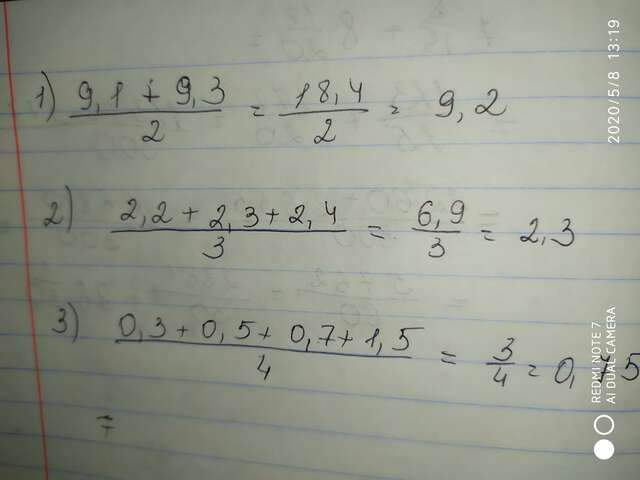 1) (9,1 + 9,3)/2 = 18,4/2 = 9,2
2) (2,2 + 2,3 + 2,4)/3 = 6,9/3 = 2,3
3) (0,3 + 0,5 + 0,7 + 1,5)/4 = 3/4 = 0,75
=
2020/5/8 13:19
REDMI NOTE 7
AI DUAL CAMERA